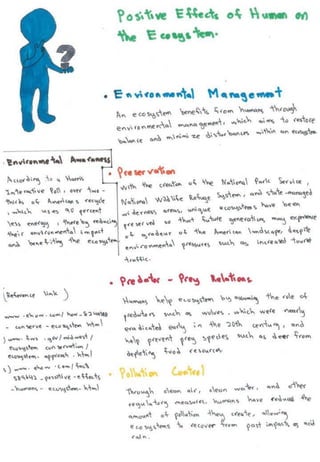 Positive Effects of Human on
the Ecosystem.
• Environmental Management
An ecosystem benefits from humans through
environmental management, which aims to restore
balance and minimize disturbances within an ecosystem
Environmental Awareness
According to a Harris
Interactive Poll, over two-
thirds of Americans recycle
, which uses 95 percent
less energy, thereby reducing
their environmental impact
and benefiting the ecosystem
• Preservation
With the creation of the National Park Service,
National Wildlife Refuge System, and state-managed
wilderness areas, unique ecosystems have been
preserved so that future generations may experience
of grandeur of the American landscape despite
environmental pressures such as increased tourist
traffic.
• Predator - Prey Relations
Humans help ecosystem by assuming the role of
predators such as wolves, which were nearly
eradicated early in the 20th century, and
help prevent prey species such as deer from
depleting food resources
• Pollution Control
Through clean air, clean water, and other
regulatory measures, humans have reduced the
amount of pollution they create, allowing
ecosystems to recover from past impacts as acid
rain.
(Reference link)
- conserve - ecosystem. html
ecosystem conservation/
ecosystem. approach. html
- humans - ecosystem. html